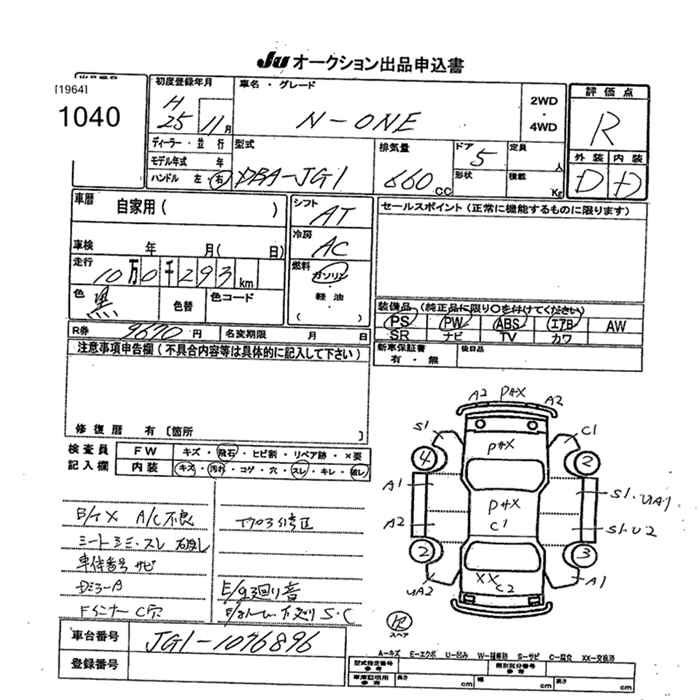 JU オークション出品申込書
[1964]
1040
初度登録年月
H 25 11月
車名・グレード
N-ONE
2WD
・
4WD
評価点
R
外装 内装
D D
ディーラー・並行
モデル年式 年
ハンドル 左・右
型式
DBA-JG1
排気量
660 CC
ドア 5
形状
定員 人
積載 Kg
車歴 自家用( )
車検 年 月( 日)
走行
10万0千293km
色 黒
色替
色コード
シフト
AT
冷房
AC
燃料
ガソリン
・
軽油
( )
セールスポイント(正常に機能するものに限ります)
装備品(純正品に限り○を付けてください)
PS PW ABS エアB AW
SR ナビ TV カワ
新車保証書
有・無
後日品
R券 9670円 名変期限 月 日
注意事項申告欄(不具合内容等は具体的に記入して下さい)
修復歴 有〔箇所 〕
検査員
記入欄
FW キズ・飛石・ヒビ割・リペア跡・×要
内装 キズ・汚れ・コゲ・穴・スレ・キレ・破レ
A/C不良
シートシミ・スレ 破レ
車体番号サビ
車台番号 JG1-1076896
登録番号
A2 P+X A2
S1 C1
P+X
4 2
A1 S1・UA1
P+X
C1
A2 S1・U2
2 3
UA2 A1
XX C2
R
スペア
A-キズ E-エクボ U-凹み W-補修跡 S-サビ C-腐食 XX-交換済
型式指定番号
参考
類別区分番号
参考
車庫証明用
参考
長さ cm 幅 cm 高さ cm